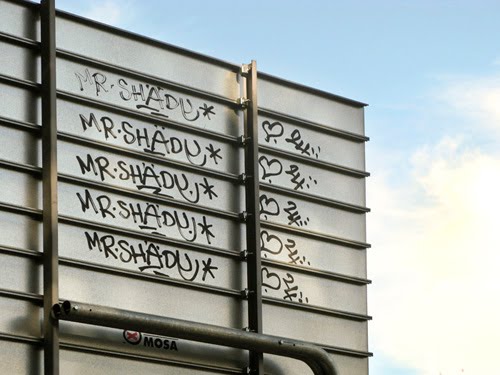 MR·SHÄDU*
MR·SHÄDU*
MR·SHÄDU*
MR·SHÄDU*
MR·SHÄDU*
MOSA